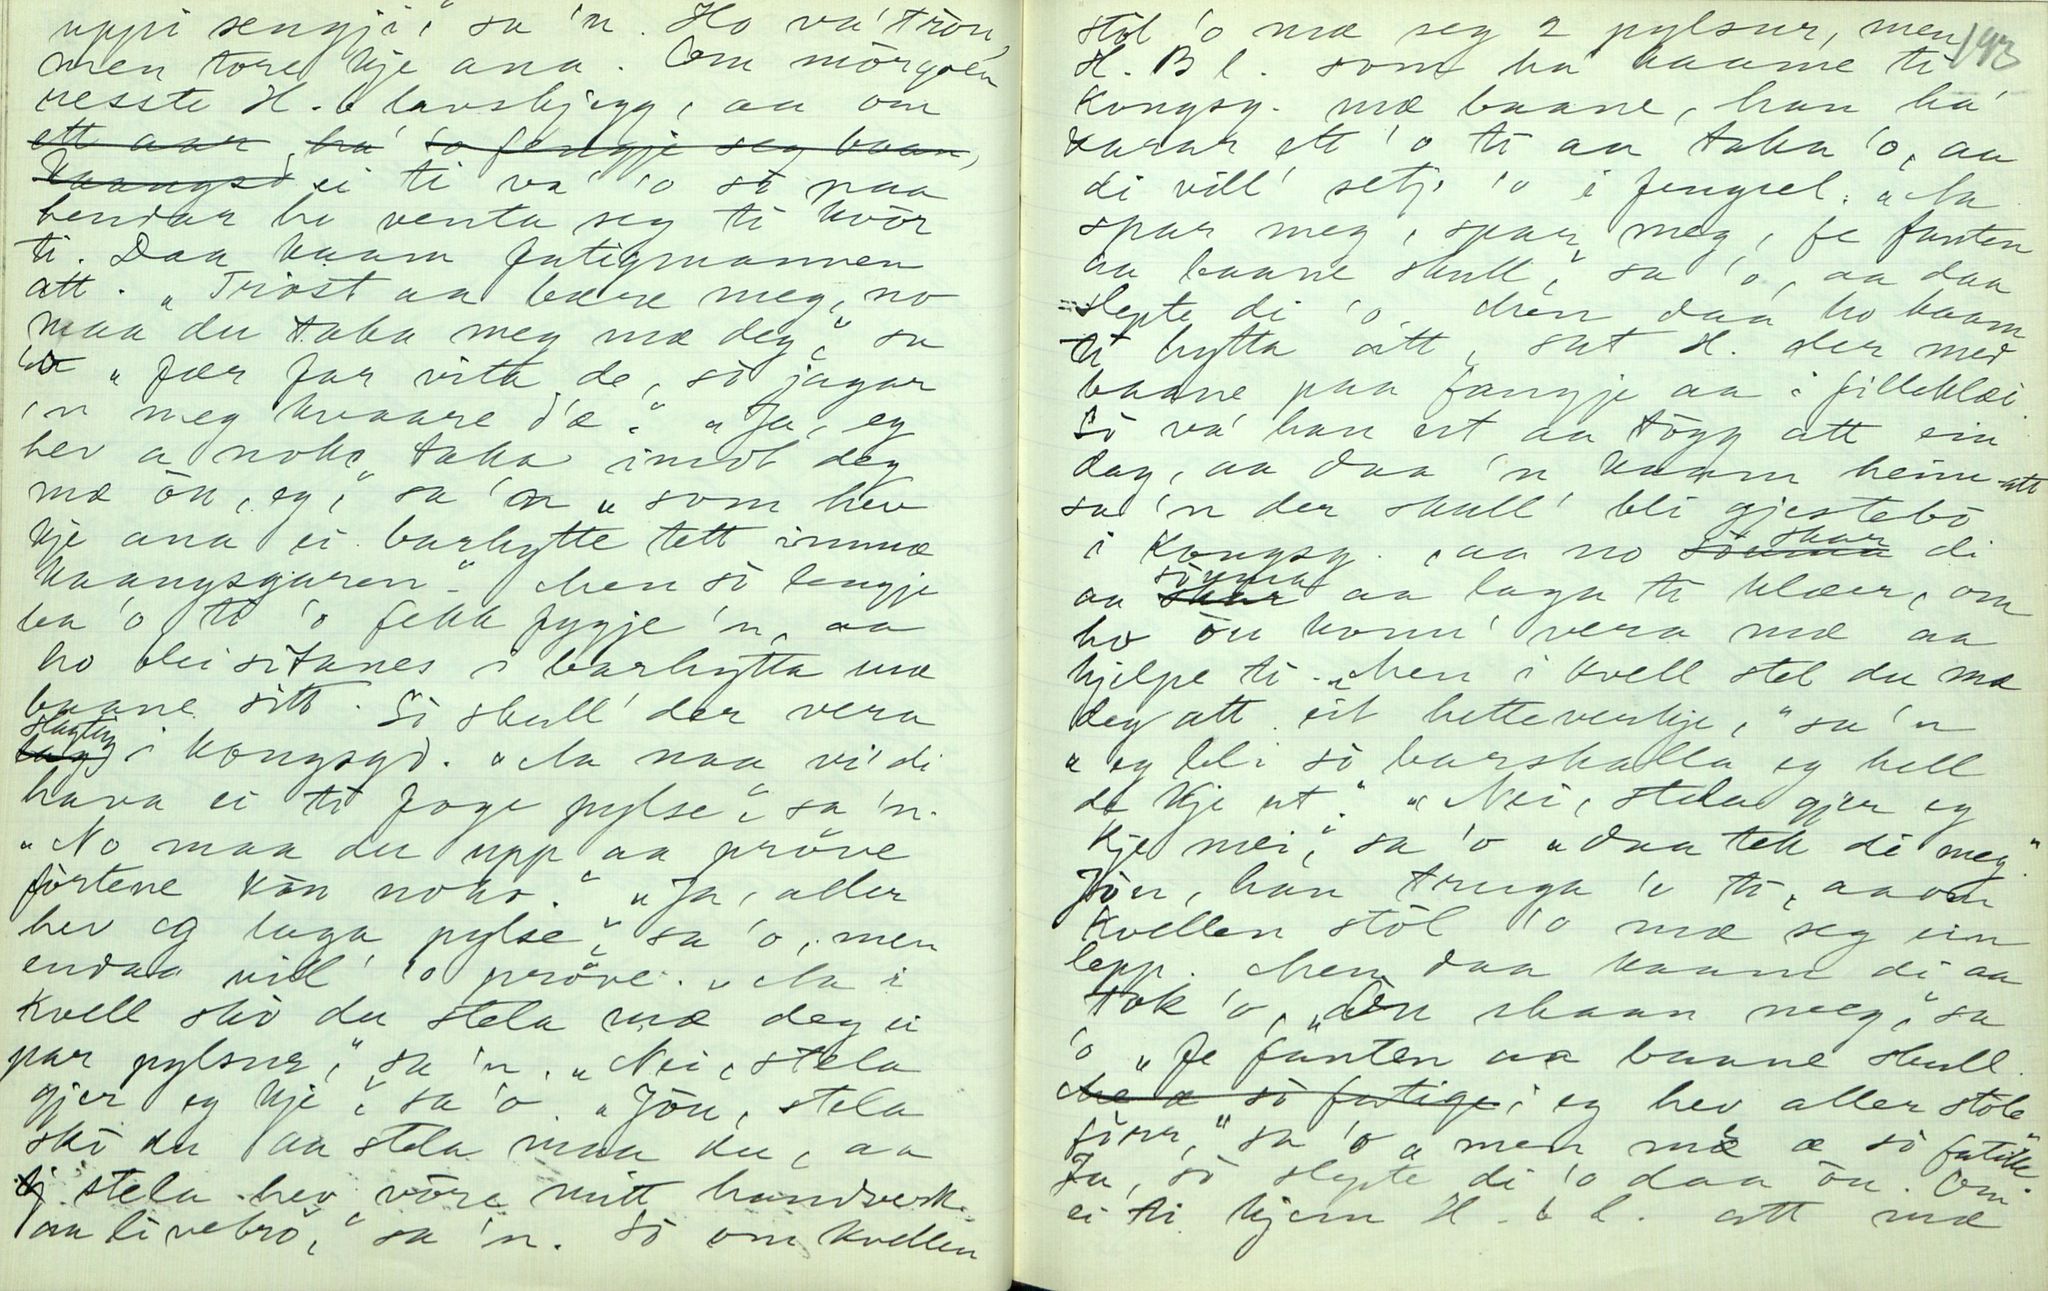 uppi sengji," sa 'n. Ho va' trōn,
men tore kje ana. Om mōrgoen
resste H. blaavsbjegg, aa om
ett aar, ha' so fengje seg baan,
kaangsd ei ti va' 'o sō paa
hendar ho venta seg ti kvōr
ti. Daa kaam fatigmannen
att. "Trōst aa bære meg, no
maa du taka meg mæ deg," sa
'o "fær far vita de, sō jagar
'n meg kvaare d'æ." "Ja, eg
hev a noko taka imot deg
mæ ōu, eg," sa 'n "som hev
kje ana ei barhytte tett innmæ
kaangsgaren". Men sō lengje
ba 'o ti 'o fekk fygje 'n, aa
ho blei sitanes i barhytta mæ
baane sitt. Sō skull' der vera
slagting i kongsgd. "Aa naa vi' di
hava ei ti foge pylse," sa 'n.
"No maa du upp aa prōve
fōrtene kōn noko." "Ja, aller
hev eg laga pylse," sa 'o, men
endaa vill' 'o prōve. "Aa i
kvell skō du stela mæ deg ei
par pylsur," sa 'n. "Nei, stela
gjer eg kje," sa 'o. "Jōu, stela
skō du aa stela maa du, aa
stela hev vōre mitt handverk
aa livebrō," sa 'n. Sō om kvellen
stōl 'o mæ seg 2 pylsur, men 193
H. Bl. som ha' kaame ti
Kongsg. mæ baane, han ha'
karar ett 'o ti aa taka 'o, aa
di vill' setj' 'o i fengsel. "Aa
spar meg, spar meg, fe fanten
aa baane skull," sa 'o, aa daa
slepte di 'o. Men daa ho kaam
ti hytta att, sat H. der med
baane paa fangje aa i filleklæi.
Sō va' han ut aa tōgg att ein
dag, aa daa 'n kaam heim-att
sa 'n der skull' bli gjestebō
i Kongsg., aa no sōuma skar di
aa skar sōuma aa laga ti klæer, om
ho ōu konn' vera mæ aa
hjelpe ti. "Men i kvell stel du mæ
deg att eit hetteverkje," sa 'n
"eg bli sō barskalla eg hell
de kje ut." "Nei, stela gjer eg
kje mei," sa 'o "daa tek di meg."
Jōu, han truga 'o ti, aa om
kvellen stōl 'o mæ seg ein
lepp. Men daa kaam di aa
tok 'o, "Ōu skaan meg," sa
'o "Fe fanten aa baane skull.
Me æ sō fatige, eg hev aller stōle
fōrr," sa 'o "men mæ æ sō fatike"
Ja, sō slepte di 'o daa ōu. Om
ei ti kjem H. b l. att mæ